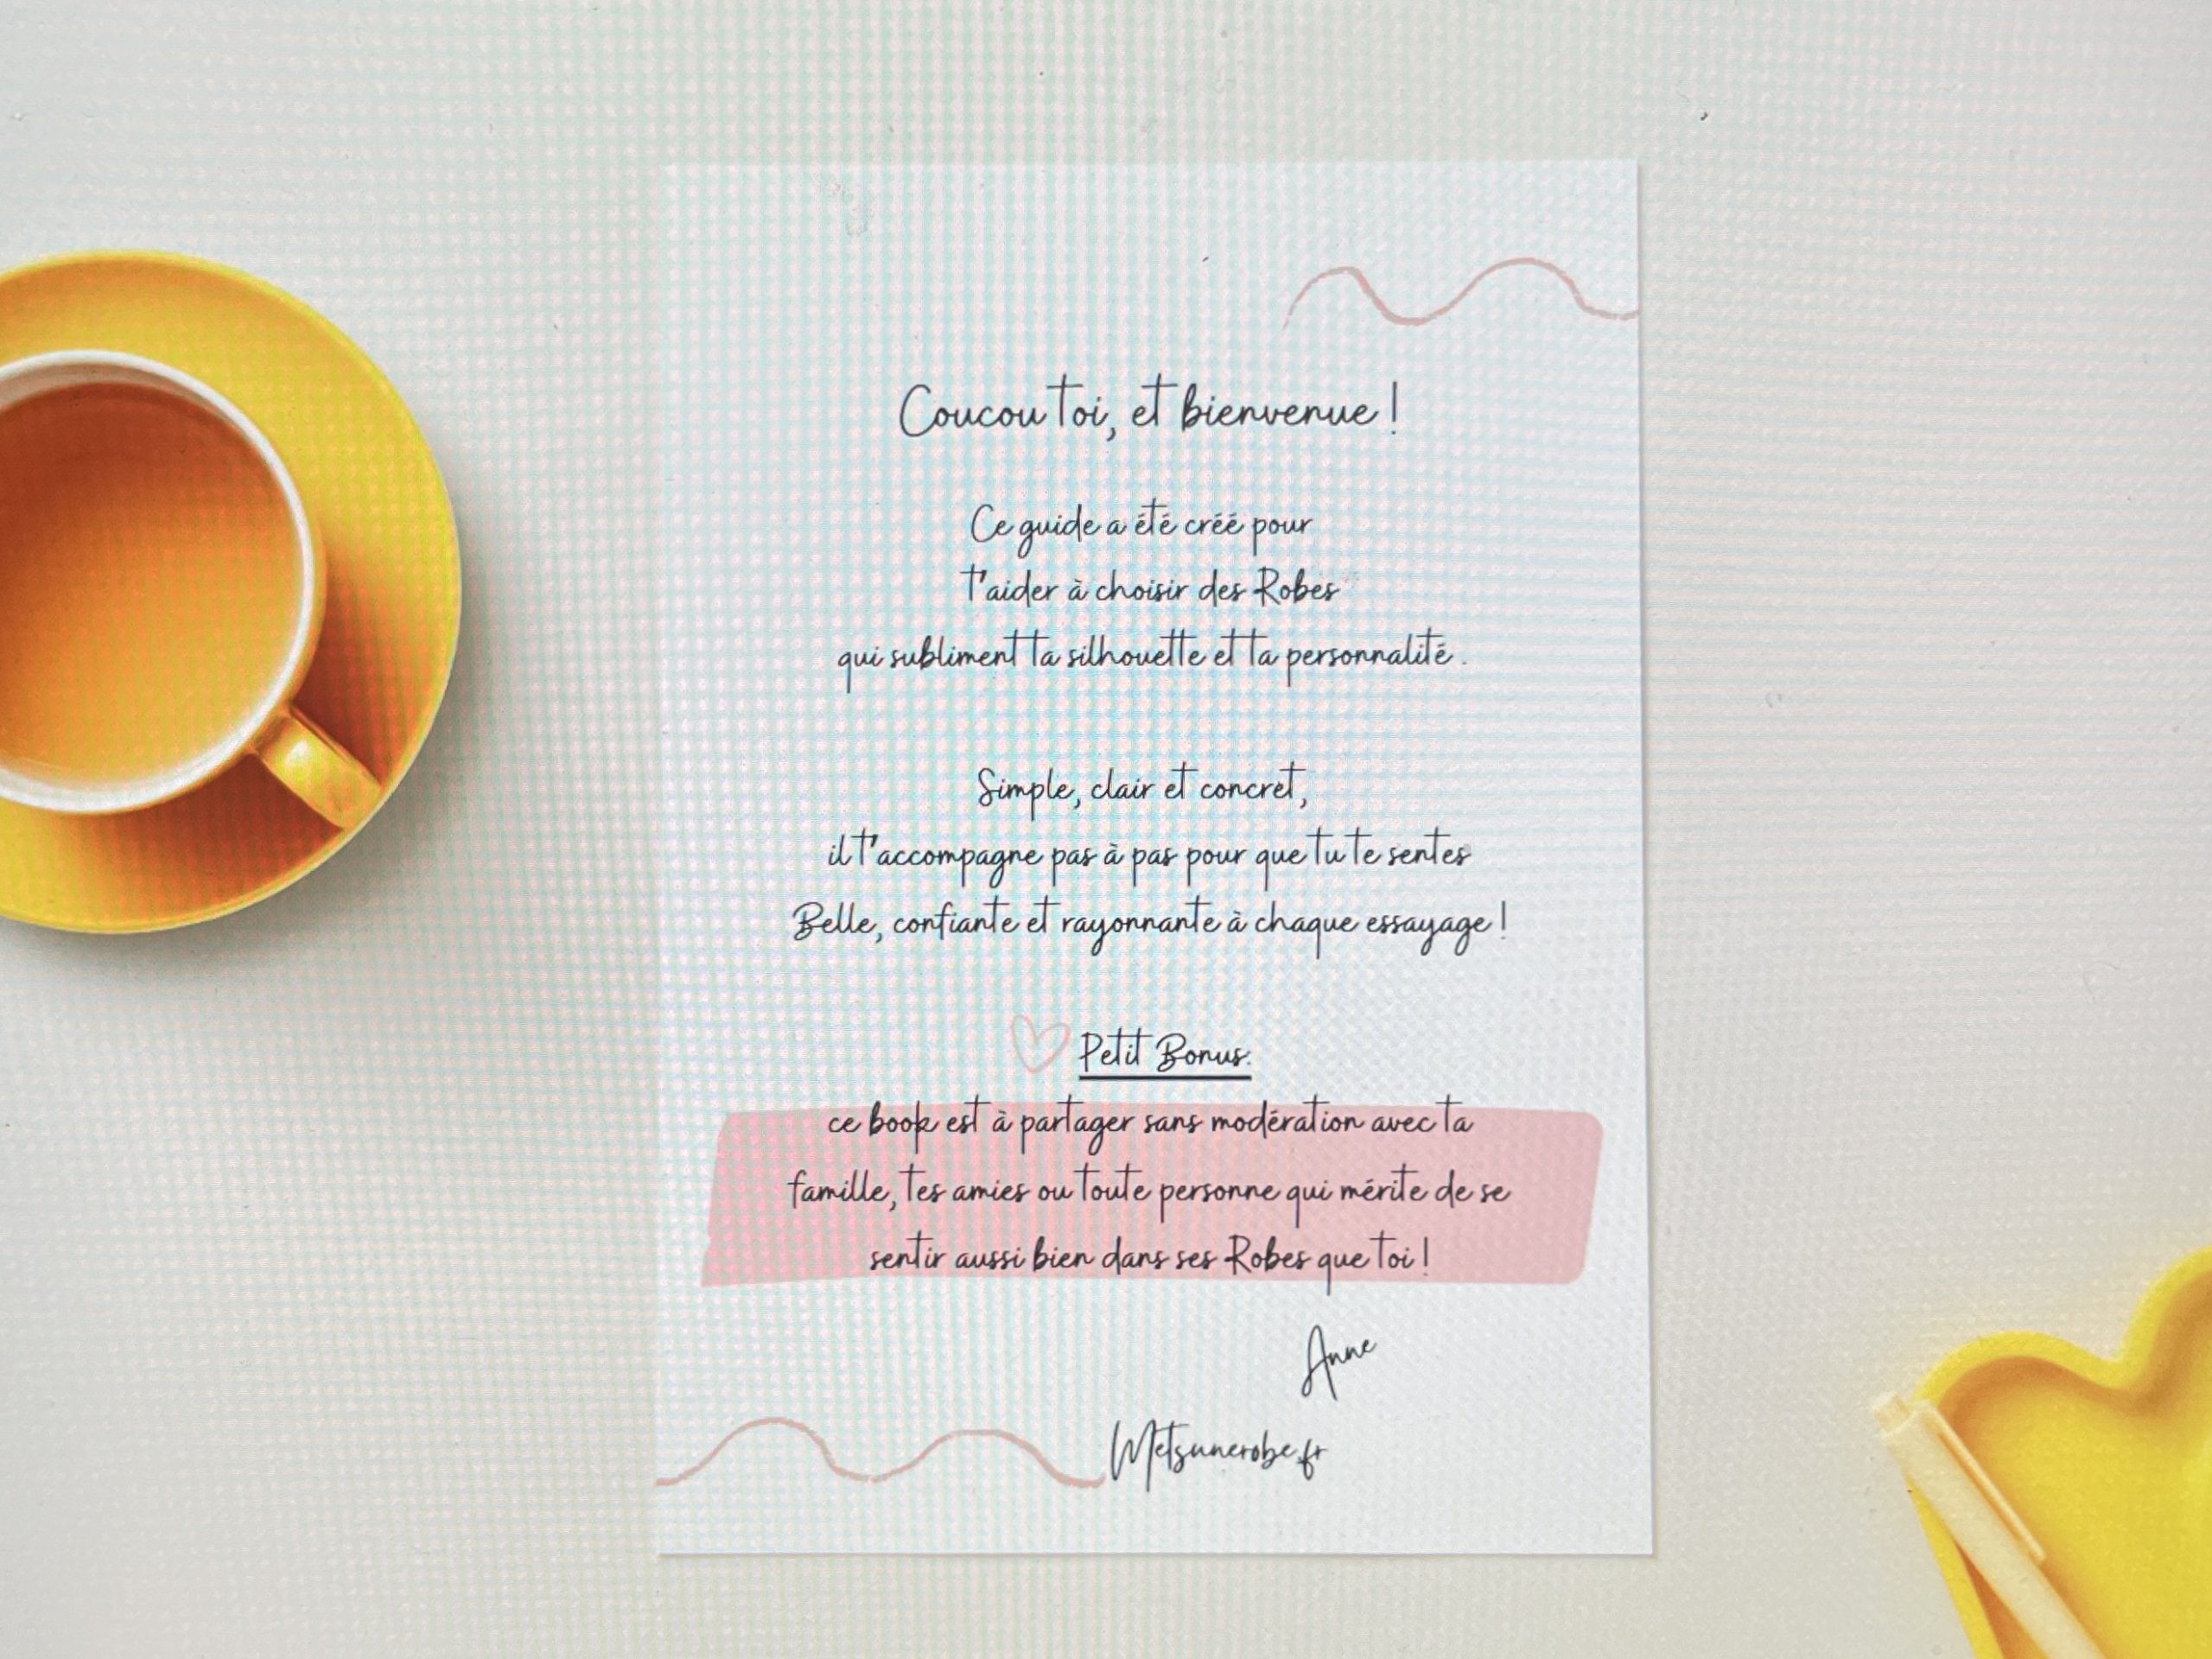 Coucou toi, et bienvenue !
Ce guide a été créé pour
t'aider à choisir des Robes
qui subliment ta silhouette et ta personnalité.
Simple, clair et concret,
il t'accompagne pas à pas pour que tu te sentes
Belle, confiante et rayonnante à chaque essayage !
Petit Bonus:
ce book est à partager sans modération avec ta
famille, tes amies ou toute personne qui mérite de se
sentir aussi bien dans ses Robes que toi !
Anne
Metsunerobe.fr